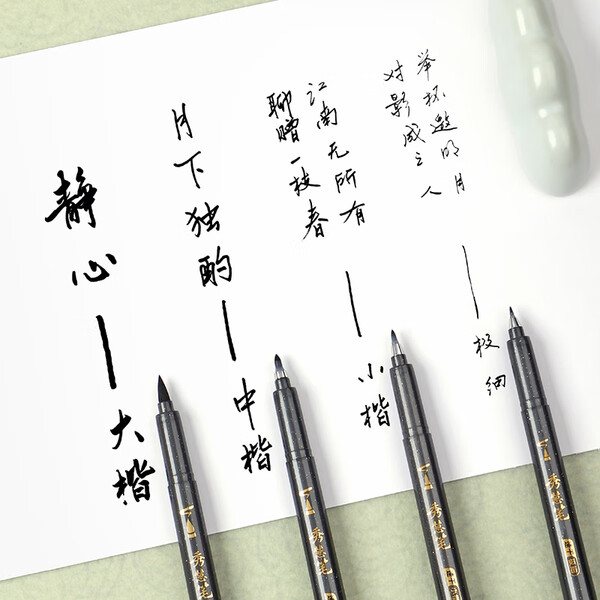 静心
大楷
月下独酌
中楷
江南无所有
聊赠一枝春
小楷
举杯邀明月
对影成三人
极细